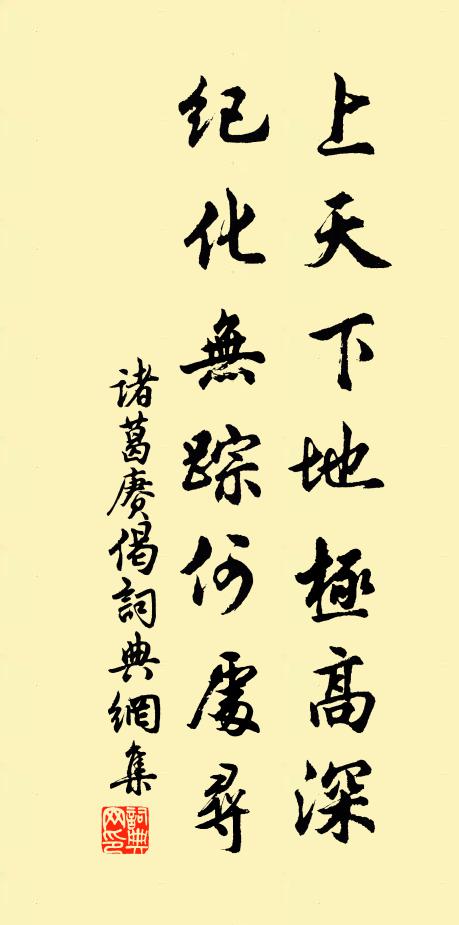 上天下地極高深
紀化無踪何處尋
諸葛賡偈詞典網集
詞典
网印